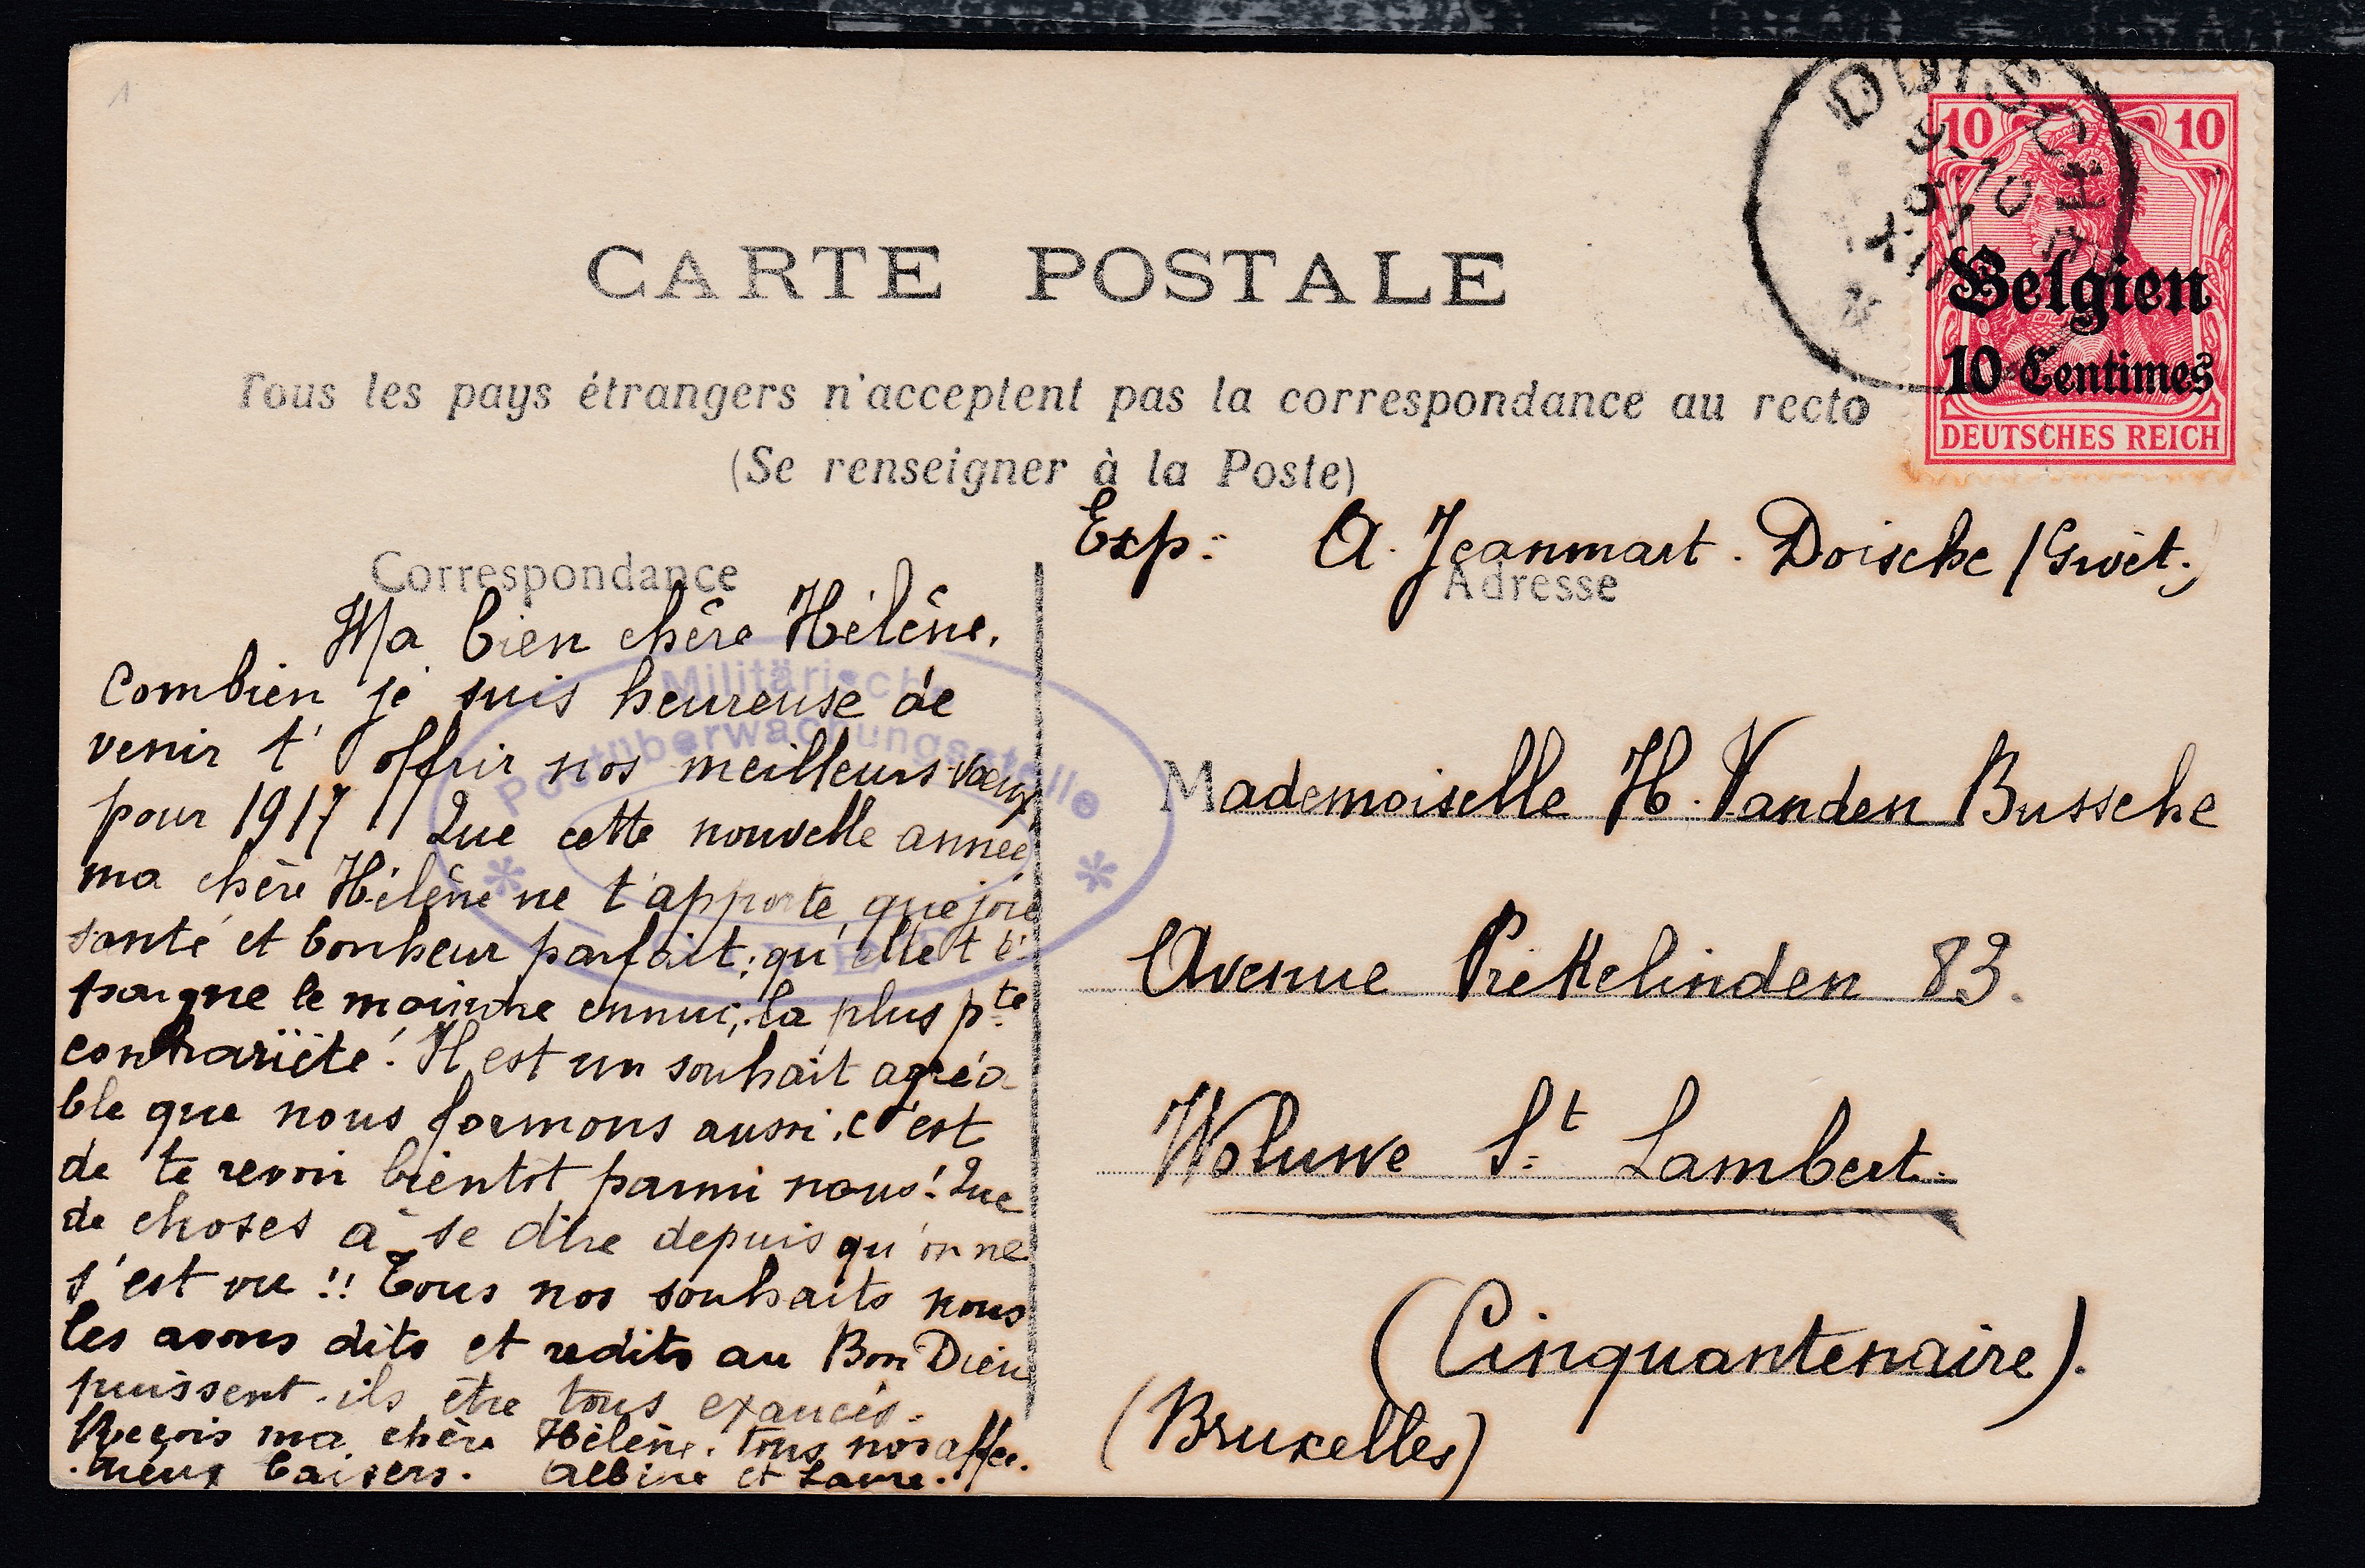 CARTE POSTALE
10 10
Belgien
10 Centimes
DEUTSCHES REICH
Tous les pays étrangers n'acceptent pas la correspondance au recto
(Se renseigner à la Poste)
Exp: A. Jeanmart. Doische (Givet.)
Correspondance
Adresse
Ma bien chère Hélène.
Combien je suis heureuse de
venir t'offrir nos meilleurs vœux
pour 1917!! Que cette nouvelle année
ma chère Hélène ne t'apporte que joie
santé et bonheur parfait; qu'elle t'é-
pargne le moindre ennui, la plus pte
contrariété! Il est un souhait agréa
ble que nous formons aussi, c'est
de te revoir bientôt parmi nous! Que
de choses à se dire depuis qu'on ne
s'est vu!! Tous nos souhaits nous
les avons dits et redits au Bon Dieu
puissent-ils être tous exaucés.
Reçois ma chère Hélène, tous nos affec.
tueux baisers. Albine et Laure.
Militärische
Postüberwachungsstelle
Mademoiselle H. Vanden Bussche
Avenue Prekelinden 83.
Woluwe St Lambert.
(Cinquantenaire).
(Bruxelles)